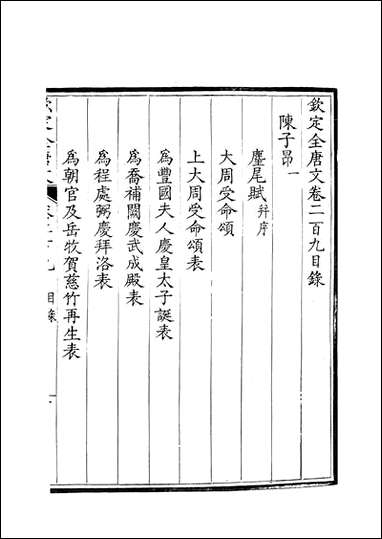 欽定全唐文卷二百九目錄
陳子昂一
麈尾賦 并序
大周受命頌
上大周受命頌表
爲豐國夫人慶皇太子誕表
爲喬補闕慶武成殿表
爲程處弼慶拜洛表
爲朝官及岳牧賀慈竹再生表
欽定全唐文 目錄